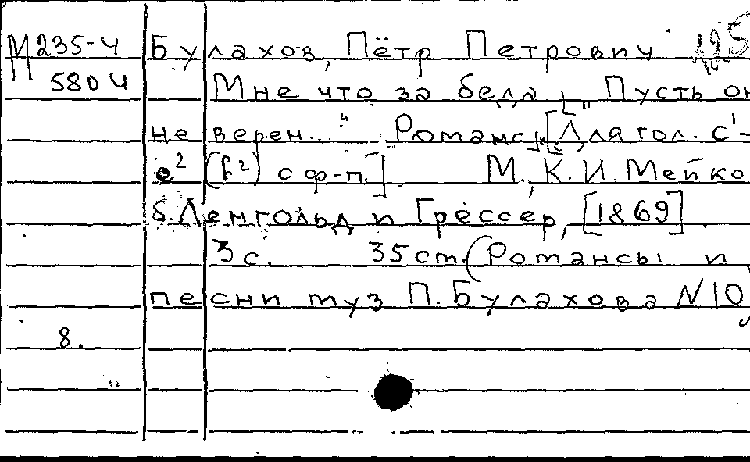 М 235-4 Булахов, Пётр Петрович 125
580 4 Мне что за беда [„Пусть он
не верен..." Романс]. [Для гол. с¹-
е² (f²) с ф-п.] М., К.И. Мейко
б. Ленгольд и Грессер, [1869]
3 с. 35 ст. (Романсы и
песни муз П. Булахова N 10
8.